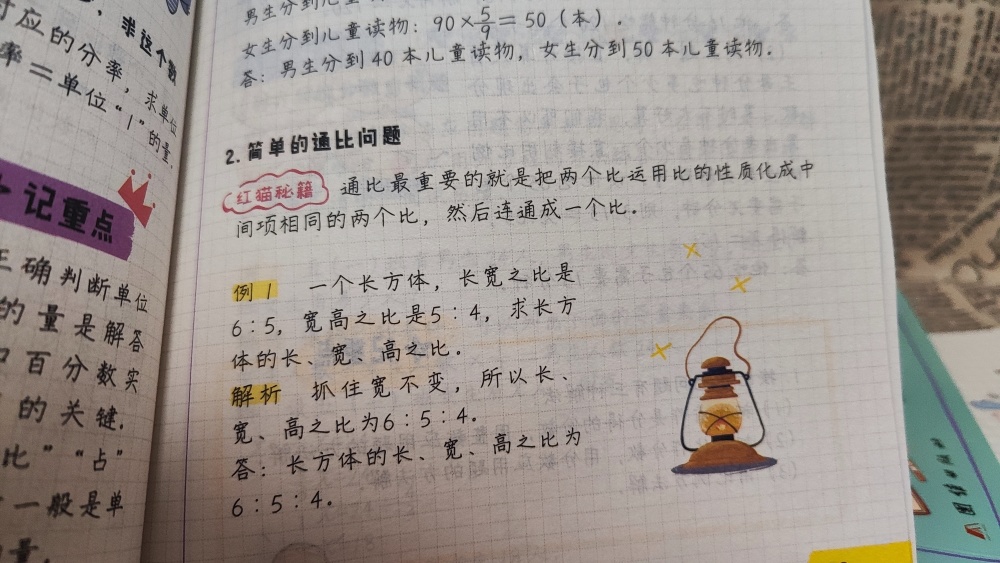 男生分到儿童
女生分到儿童读物：90×5/9=50（本）.
答：男生分到40本儿童读物，女生分到50本儿童读物.
2.简单的通比问题
红猫秘籍 通比最重要的就是把两个比运用比的性质化成中
间项相同的两个比，然后连通成一个比.
例1 一个长方体，长宽之比是
6：5，宽高之比是5：4，求长方
体的长、宽、高之比.
解析 抓住宽不变，所以长、
宽、高之比为6：5：4.
答：长方体的长、宽、高之比为
6：5：4.
非这个数
对应的分率，求单位
率=单位“1”的量.
记重点
正确判断单位
的量是解答
和百分数实
的关键.
比”“占”
一般是单
量.